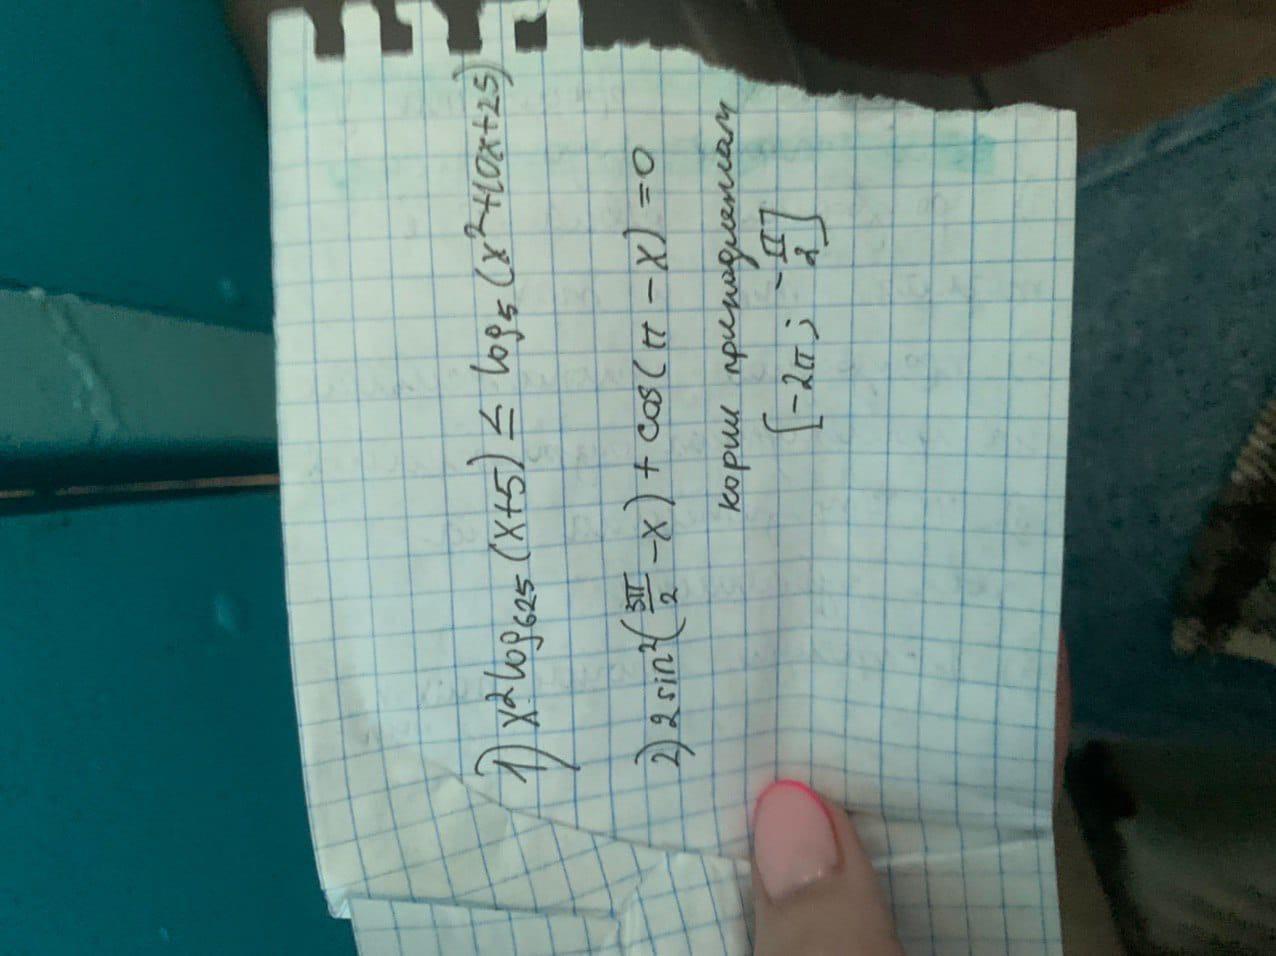 1) x² log₆₂₅ (x+5) ≤ log₅ (x²+10x+25)
2) 2 sin² (3π/2 - x) + cos (π - x) = 0
корни принадлежат
[-2π ; -π/2]